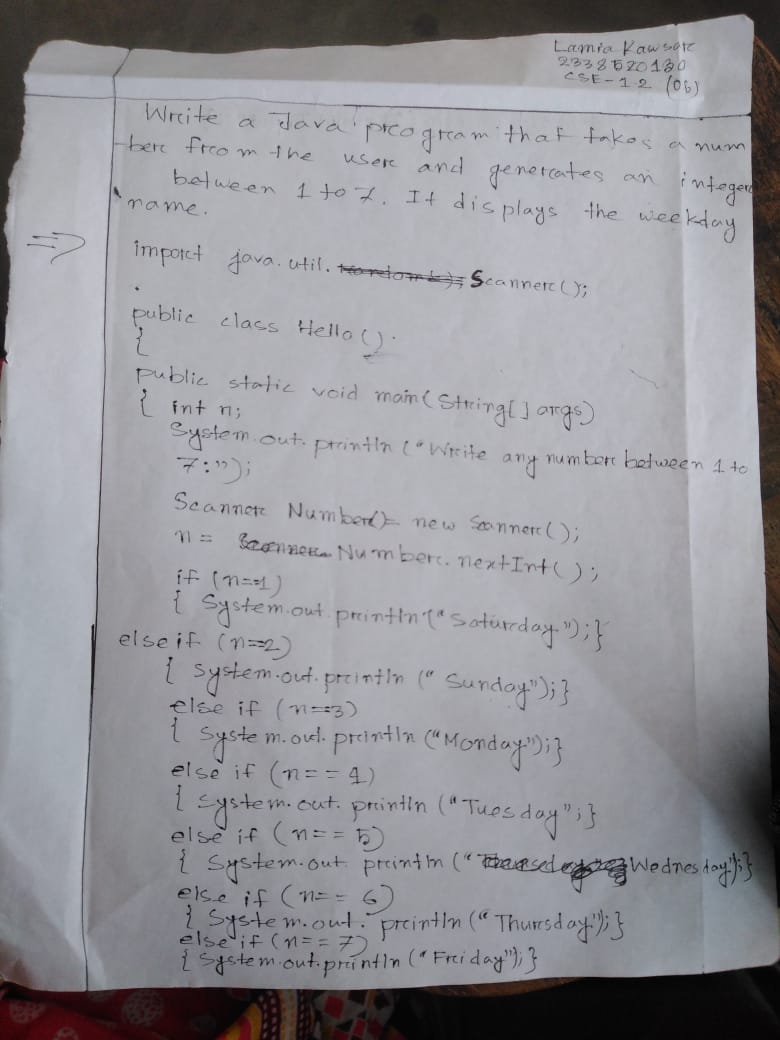 Lamia Kawsar
2338520130
CSE-12 (06)
Write a Java program that takes a num
ber from the user and generates an integer
between 1 to 7. It displays the weekday
name.
import java.util. Scanner();
public class Hello()
{
public static void main(String[] args)
{ int n;
System.out.println ("Write any number between 1 to
7:");
Scanner Number()= new Scanner();
n = Number.nextInt();
if (n==1)
{ System.out.println("Saturday");}
else if (n==2)
{ System.out.println ("Sunday");}
else if (n==3)
{ System.out.println ("Monday");}
else if (n==4)
{ System.out.println ("Tuesday";}
else if (n==5)
{ System.out.println (" Wednesday");}
else if (n==6)
{ System.out.println ("Thursday");}
else if (n==7)
{ System.out.println ("Friday");}